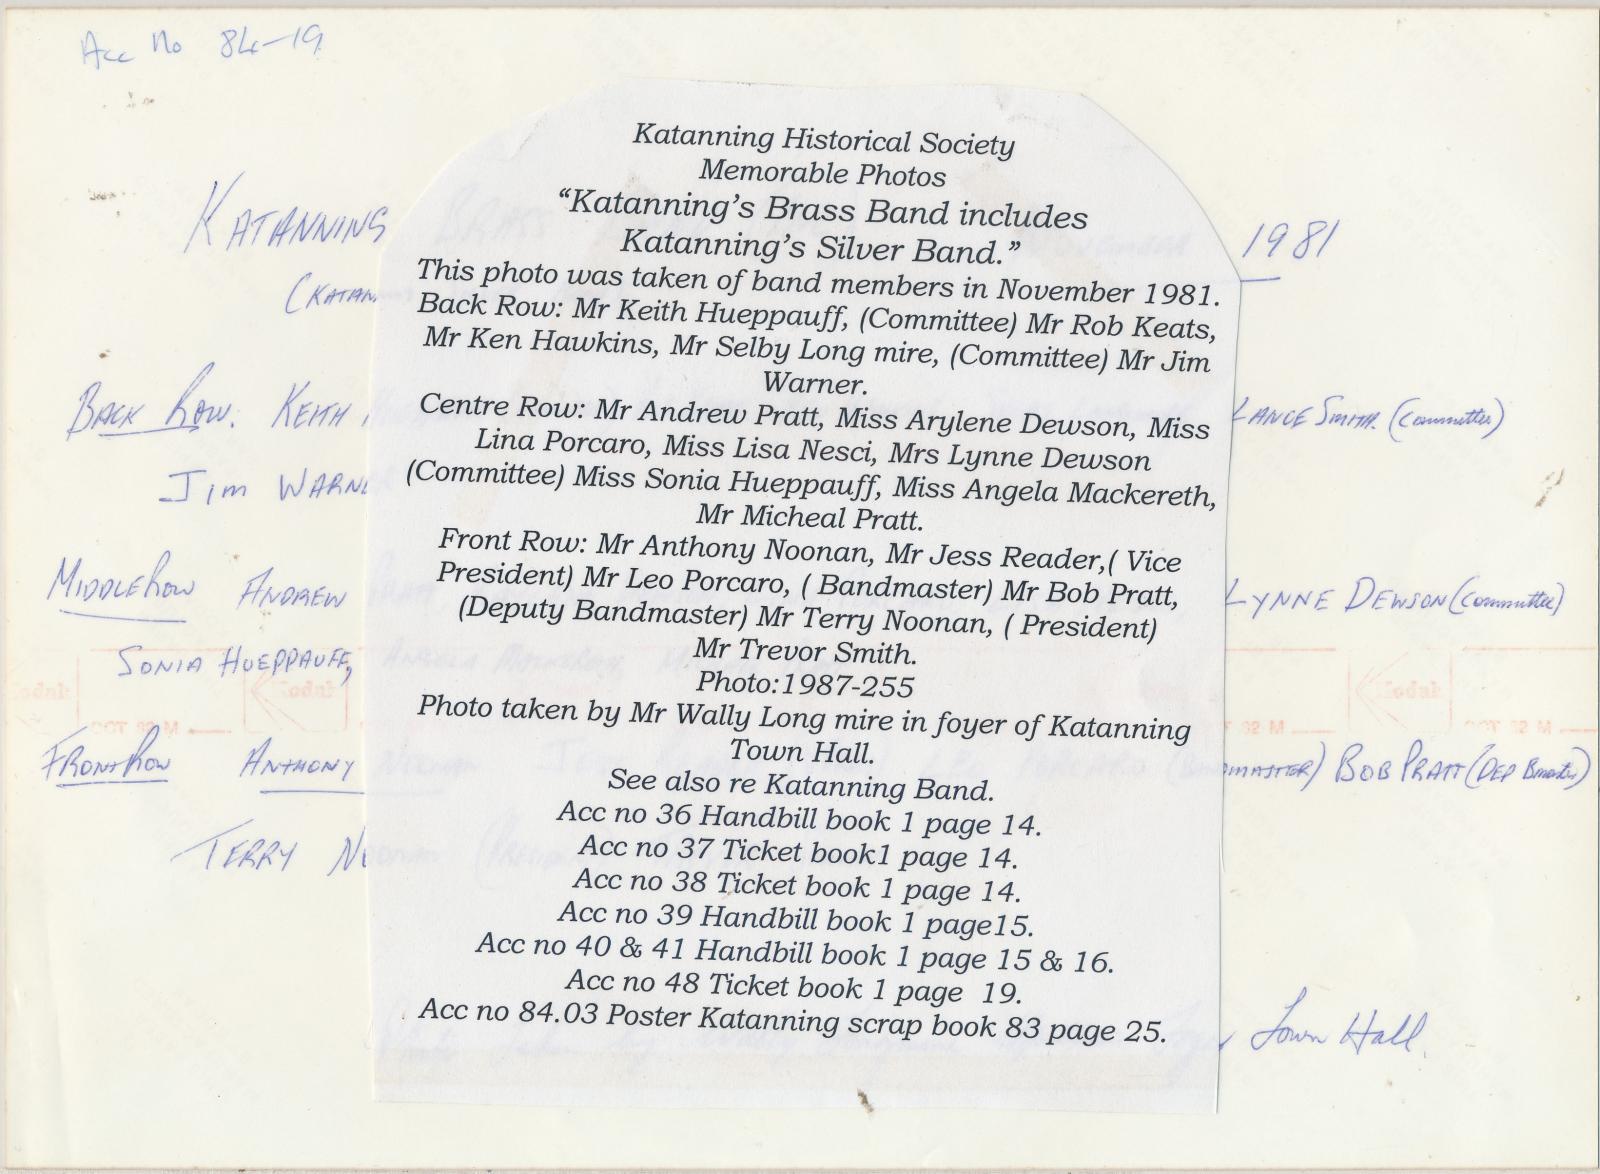 Acc No 84-19
Katanning Historical Society
Memorable Photos
“Katanning’s Brass Band includes
Katanning’s Silver Band.”
This photo was taken of band members in November 1981.
Back Row: Mr Keith Hueppauff, (Committee) Mr Rob Keats,
Mr Ken Hawkins, Mr Selby Long mire, (Committee) Mr Jim
Warner.
Centre Row: Mr Andrew Pratt, Miss Arylene Dewson, Miss
Lina Porcaro, Miss Lisa Nesci, Mrs Lynne Dewson
(Committee) Miss Sonia Hueppauff, Miss Angela Mackereth,
Mr Micheal Pratt.
Front Row: Mr Anthony Noonan, Mr Jess Reader,( Vice
President) Mr Leo Porcaro, ( Bandmaster) Mr Bob Pratt,
(Deputy Bandmaster) Mr Terry Noonan, ( President)
Mr Trevor Smith.
Photo:1987-255
Photo taken by Mr Wally Long mire in foyer of Katanning
Town Hall.
See also re Katanning Band.
Acc no 36 Handbill book 1 page 14.
Acc no 37 Ticket book1 page 14.
Acc no 38 Ticket book 1 page 14.
Acc no 39 Handbill book 1 page15.
Acc no 40 & 41 Handbill book 1 page 15 & 16.
Acc no 48 Ticket book 1 page 19.
Acc no 84.03 Poster Katanning scrap book 83 page 25.
KATANNING BRASS 1981
(KATAN
BACK ROW: KEITH LANCE SMITH. (Committee)
JIM WARNE
MIDDLE ROW ANDREW PRATT, LYNNE DEWSON (Committee)
SONIA HUEPPAUFF, ANGELA
FRONT ROW ANTHONY NOONAN LEO PORCARO (BANDMASTER) BOB PRATT (DEP Bmaster)
TERRY NOONAN (PRESIDENT)
Town Hall.
Kodak
Kodak
Kodak